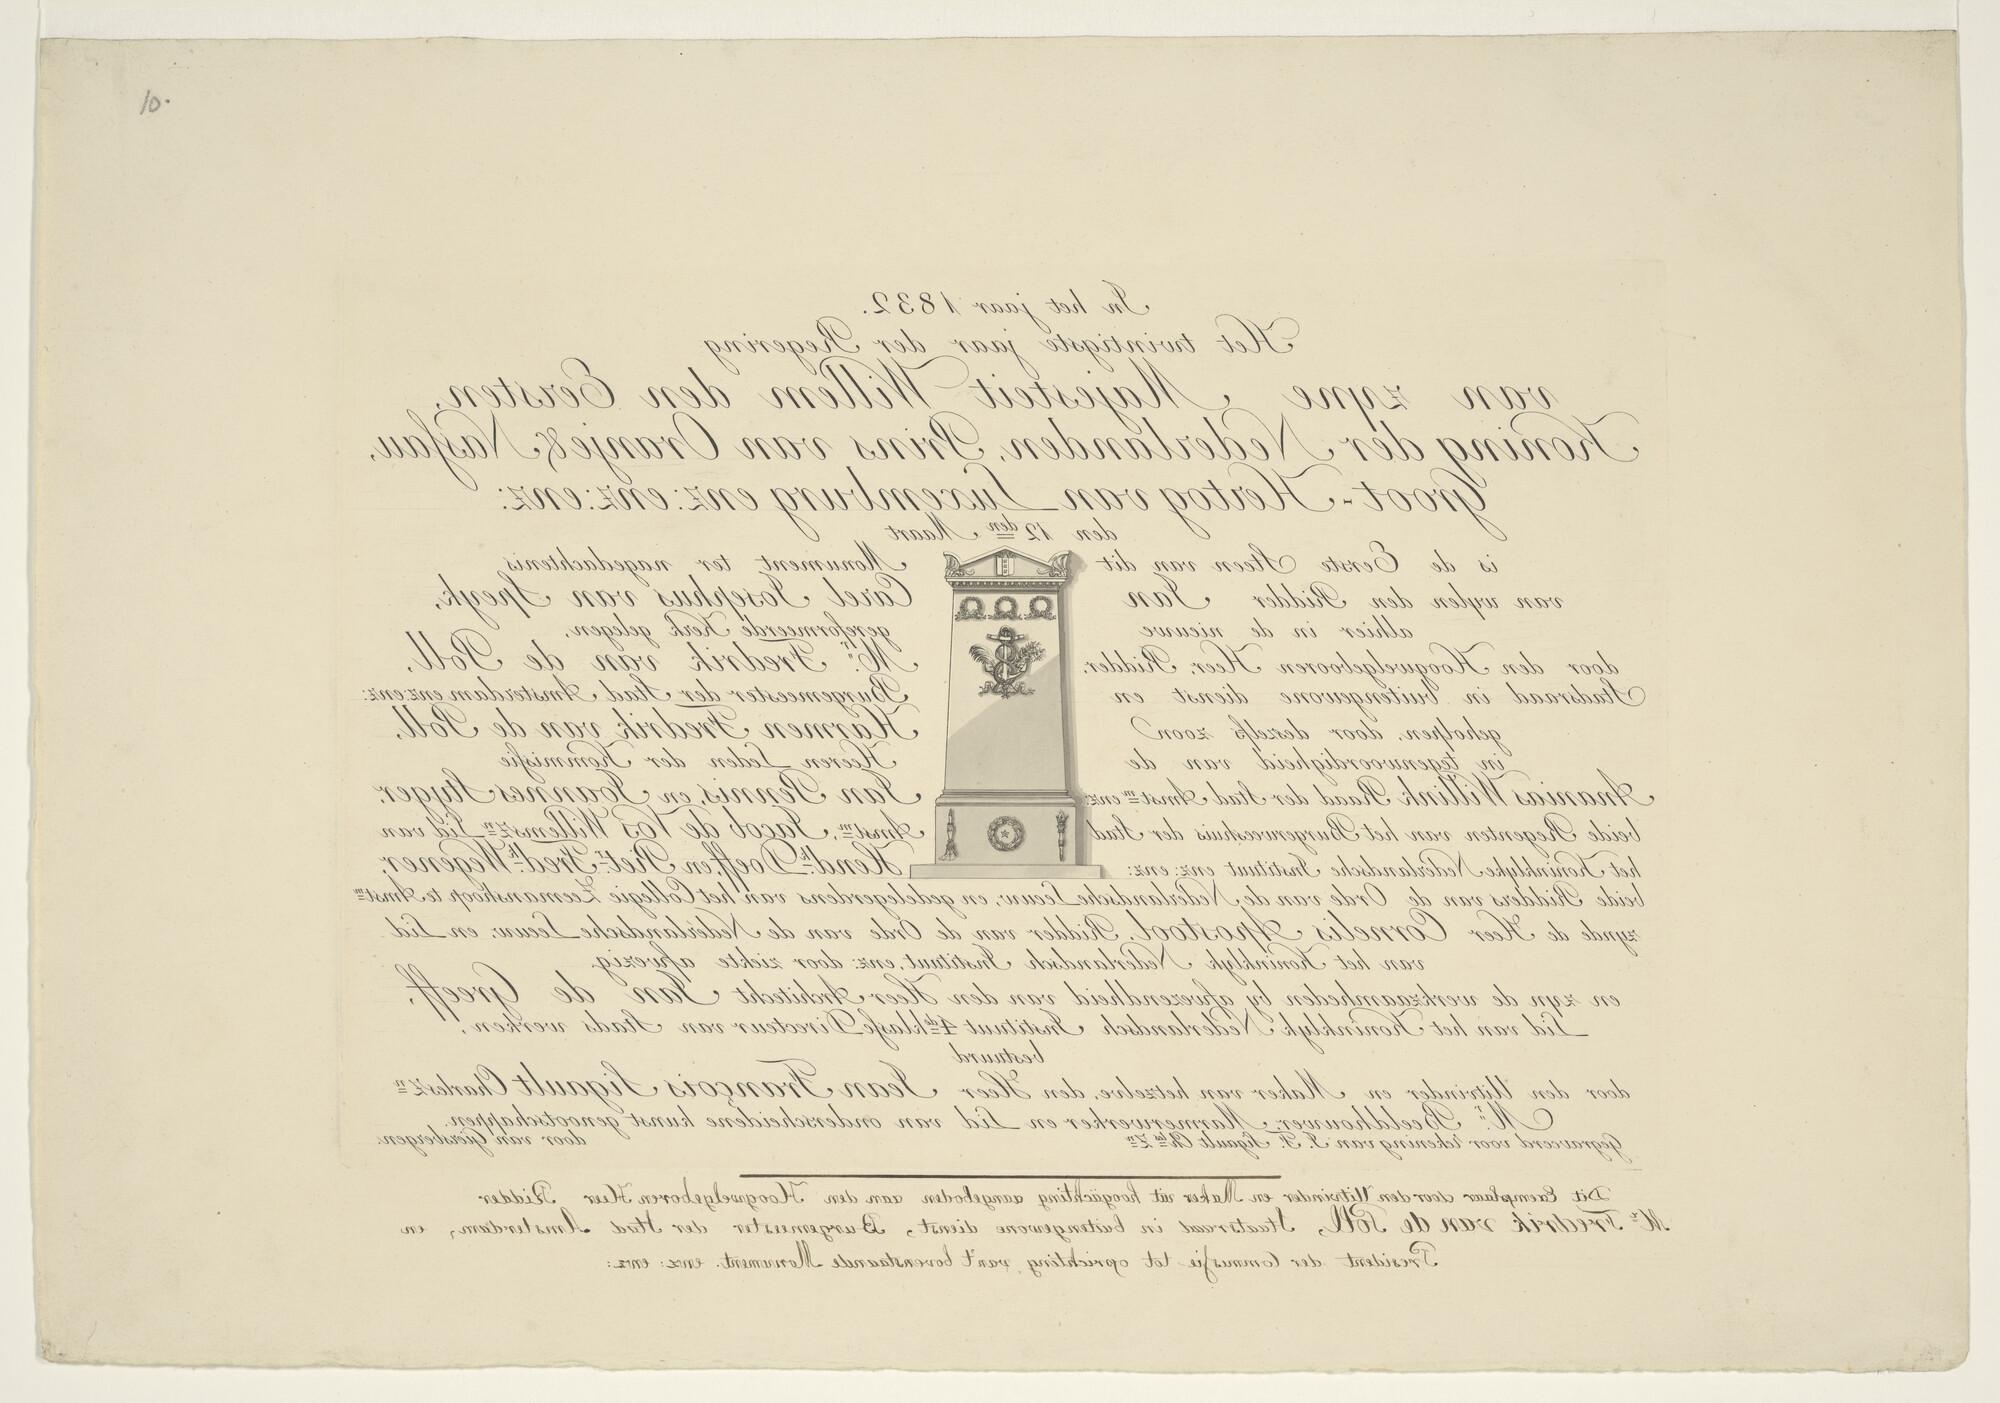 10.
In het jaar 1832.
Het twintigste jaar der Regering
van zyne Majesteit Willem den Eersten,
Koning der Nederlanden, Prins van Oranje & Nassau,
Groot-Hertog van Luxemburg enz: enz: enz:
den 12den Maart
is de Eerste Steen van dit Monument ter nagedachtenis
van wylen den Ridder Jan Carel Josephus van Speyk,
alhier in de nieuwe gereformeerde Kerk gelegen,
door den Hoogwelgebooren Heer, Ridder, Mr. Fredrik van de Poll,
Staatsraad in buitengewone dienst en Burgemeester der Stad Amsterdam enz: enz:
geholpen, door deszelfs zoon Harmen Fredrik van de Poll,
in tegenwoordigheid van de Heeren Leden der Kommissie
Ananias Willink Raad der Stad Amstm enz: Jan Pennis, en Joannes Styger,
beide Regenten van het Burgerweeshuis der Stad Amstm, Jacob de Vos Willemszn Lid van
het Koninklyke Nederlandsche Instituut enz: enz: Hendk Doeff, en Pietr Fredk Wegener,
beide Ridders van de Orde van de Nederlandsche Leeuw, en gedelegerdens van het Collegie Zeemanshoop te Amstm
zynde de Heer Cornelis Apostool, Ridder van de Orde van de Nederlandsche Leeuw, en Lid
van het Koninklyk Nederlandsch Instituut, enz: door ziekte afwezig.
en zyn de werkzaamheden by afwezendheid van den Heer Architecht Jan de Greeff,
Lid van het Koninklyk Nederlandsch Instituut 4de klasse Directeur van Stads werken,
bestuurd
door den Uitvinder en Maker van hetzelve, den Heer Jean François Sigault Charleszn
Mr. Beeldhouwer, Marmerwerker en Lid van onderscheidene kunst genootschappen.
Gegraveerd voor rekening van J. F. Sigault Chles Zn door van Giersbergen.
Dit Exemplaar door den Uitvinder en Maker uit hoogachting aangeboden aan den Hoogwelgeboren Heer Ridder
Mr Fredrik van de Poll, Staatsraad in buitengewone dienst, Burgemeester der Stad Amsterdam, en
President der Commissie tot oprichting van't bovenstaande Monument. enz: enz: